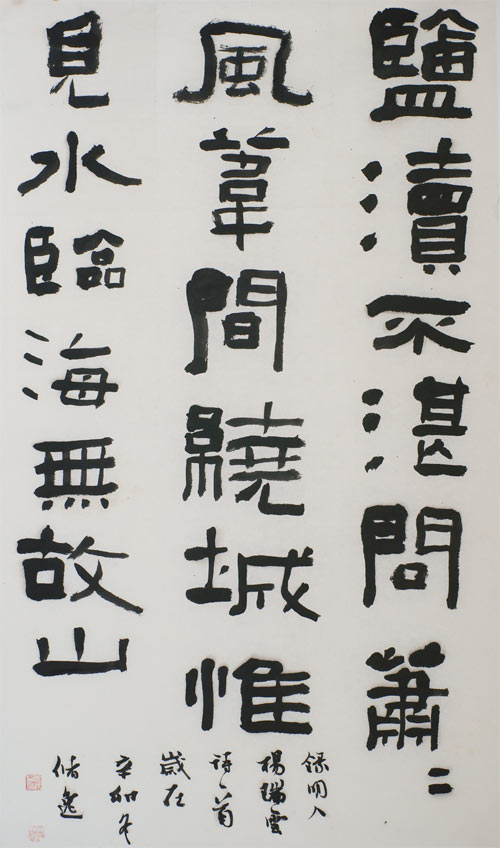 鹽瀆不湛問蕭〻
風葦間繞城惟
見水臨海無故山
錄明人
楊瑞雲
詩一首
歲在
辛卯冬